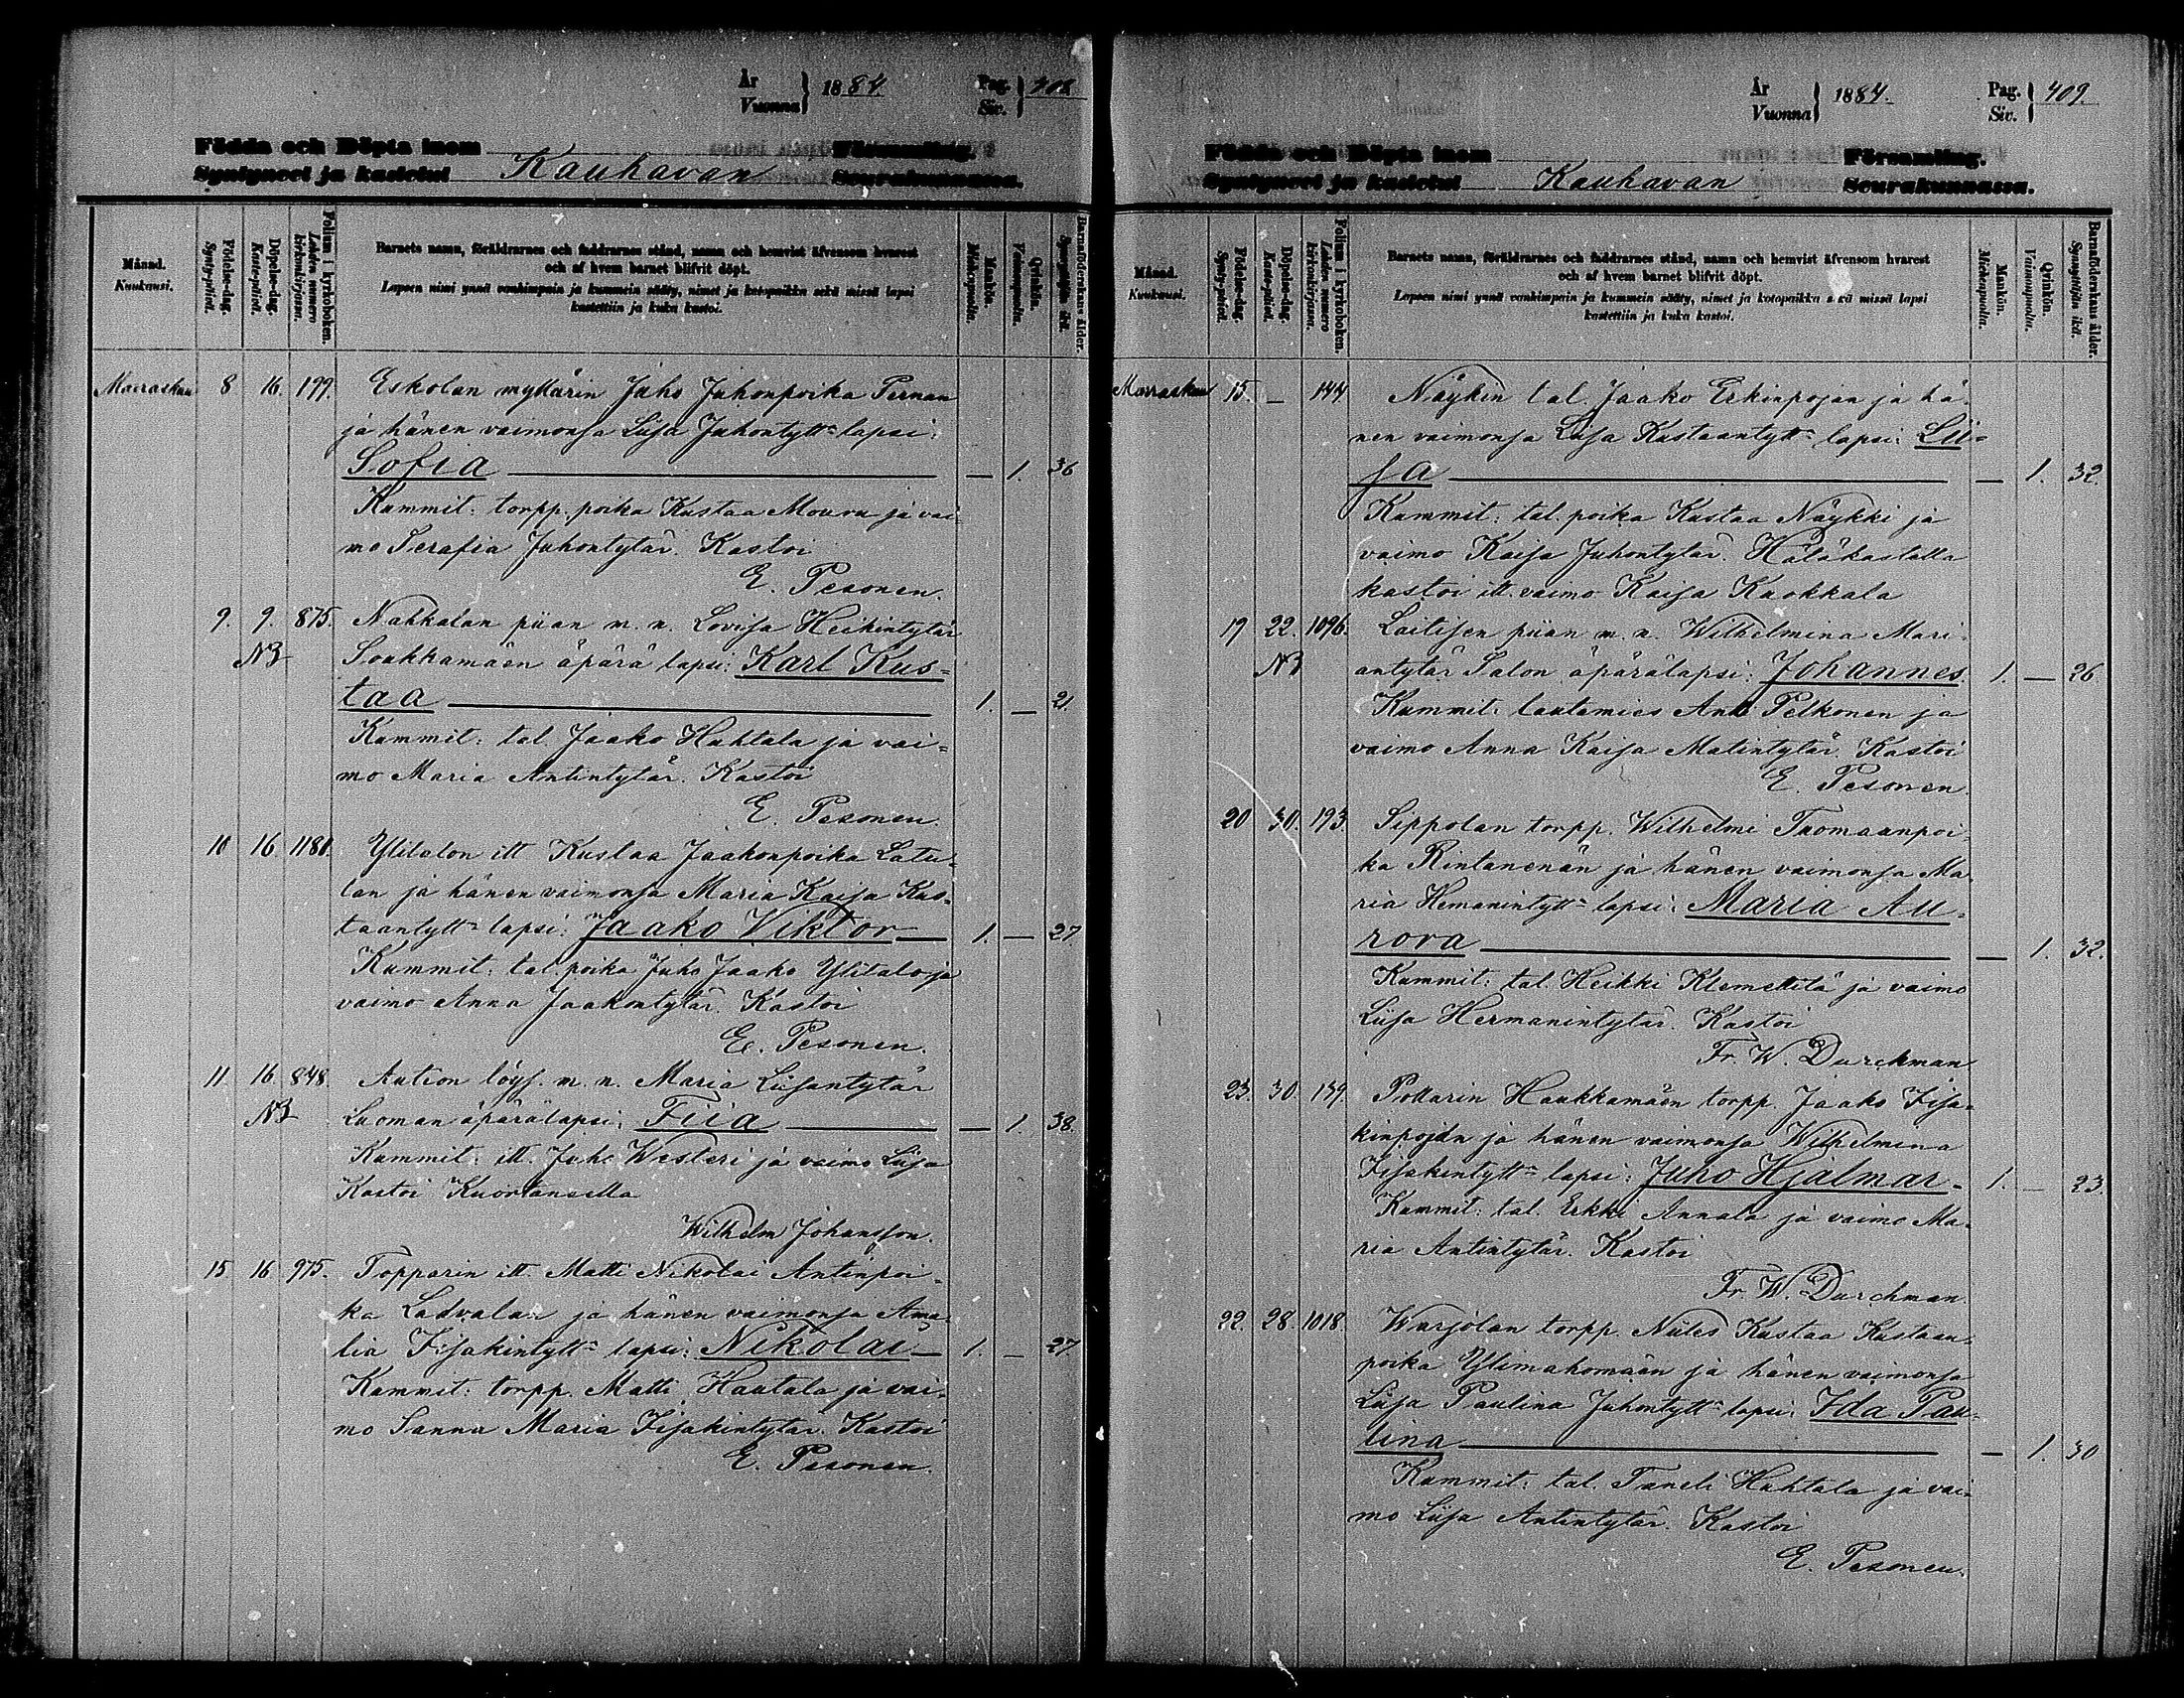 År
Vuonna } 1884. Pag.
Siv. } 408
Födda och Döpta inom Församling.
Syntyneet ja kastetut Kauhavan Seurakunnassa.
Månad.
Kuukausi.
Födelse-dag.
Synty-päivä.
Döpelse-dag.
Kaste-päivä.
Folium i kyrkoboken.
Lehden numero kirkonkirjassa.
Barnets namn, föräldrarnes och faddrarnes stånd, namn och hemvist äfvensom hvarest
och af hvem barnet blifvit döpt.
Lapsen nimi ynnä vanhimpain ja kummein sääty, nimet ja kotopaikka sekä missä lapsi
kastettiin ja kuka kastoi.
Mankön.
Miehenpuolia.
Qvinkön.
Vaimonpuolia.
Barnaföderskans ålder.
Synnyttäjän ikä.
Marraskuu 8 16. 199. Eskolan myllärin Juho Juhonpoika Pernan
ja hänen vaimonsa Liisa Juhontytt:n lapsi:
Sofia — 1. 36
Kummit: torpp. poika Kustaa Mouru ja vai-
mo Serafia Juhontytär. Kastoi
E. Pesonen.
9. 9. 875. Nahkalan piian m. n. Lovisa Heikintytär
NB Soukkamäen äpärä lapsi: Karl Kus-
taa 1. — 21.
Kummit: tal. Jaako Huhtala ja vai-
mo Maria Antintytär. Kastoi
E. Pesonen.
10 16. 1181. Ylitalon itt Kustaa Jaakonpoika Latu-
lan ja hänen vaimonsa Maria Kaisa Kus-
taantytt:n lapsi: Jaako Viktor 1. — 27
Kummit: tal. poika Juho Jaako Ylitalo ja
vaimo Anna Jaakontytär. Kastoi
E. Pesonen.
11. 16. 848. Aution löys. m. n. Maria Liisantytär
NB Luoman äpärälapsi: Fiia — 1. 38.
Kummit: itt. Juho Westeri ja vaimo Liisa
Kastoi Kuortaneella
Wilhelm Johansson.
15 16 975. Topparin itt. Matti Nikolai Antinpoi-
ka Ladvalan ja hänen vaimonsa Ama-
lia Iisakintytt:n lapsi: Nikolai 1. — 27.
Kummit: torpp. Matti Hautala ja vai-
mo Sanna Maria Iisakintytär. Kastoi
E. Pesonen.
År
Vuonna } 1884. Pag.
Siv. } 409.
Födda och Döpta inom Församling.
Syntyneet ja kastetut Kauhavan Seurakunnassa.
Månad.
Kuukausi.
Födelse-dag.
Synty-päivä.
Döpelse-dag.
Kaste-päivä.
Folium i kyrkoboken.
Lehden numero kirkonkirjassa.
Barnets namn, föräldrarnes och faddrarnes stånd, namn och hemvist äfvensom hvarest
och af hvem barnet blifvit döpt.
Lapsen nimi ynnä vanhimpain ja kummein sääty, nimet ja kotopaikka sekä missä lapsi
kastettiin ja kuka kastoi.
Mankön.
Miehenpuolia.
Qvinkön.
Vaimonpuolia.
Barnaföderskans ålder.
Synnyttäjän ikä.
Marraskuu 15. — 144. Näykin tal. Jaako Erkinpojan ja hä-
nen vaimonsa Liisa Kustaantytt:n lapsi: Lii-
sa — 1. 32.
Kummit: tal. poika Kustaa Näykki ja
vaimo Kaisa Juhontytär. Hätäkastella
kastoi itt. vaimo Kaisa Kuokkala
19 22. 1096. Laitisen piian m. n. Wilhelmina Mari-
NB antytär Salon äpärälapsi: Johannes. 1. — 26
Kummit: lautamies Antti Pelkonen ja
vaimo Anna Kaisa Matintytär. Kastoi
E. Pesonen.
20 30. 193. Sippolan torpp. Wilhelmi Tuomaanpoi-
ka Rintanenän ja hänen vaimonsa Ma-
ria Hemanintytt:n lapsi: Maria Au-
rora — 1. 32.
Kummit: tal. Heikki Klemettilä ja vaimo
Liisa Hermanintytär. Kastoi
Fr. W. Durchman
23. 30. 139. Pottarin Haukkamäen torpp. Jaako Iisa-
kinpojan ja hänen vaimonsa Wilhelmina
Iisakintytt:n lapsi: Juho Hjalmar 1. — 23.
Kummit: tal. Erkki Annala ja vaimo Ma-
ria Antintytär. Kastoi
Fr. W. Durchman.
22. 28. 1018. Warjolan torpp. Niiles Kustaa Kustaan-
poika Ylimahomäen ja hänen vaimonsa
Liisa Paulina Juhontytt:n lapsi: Ida Pau-
lina — 1. 30
Kummit: tal. Taneli Huhtala ja vai-
mo Liisa Antintytär. Kastoi
E. Pesonen.